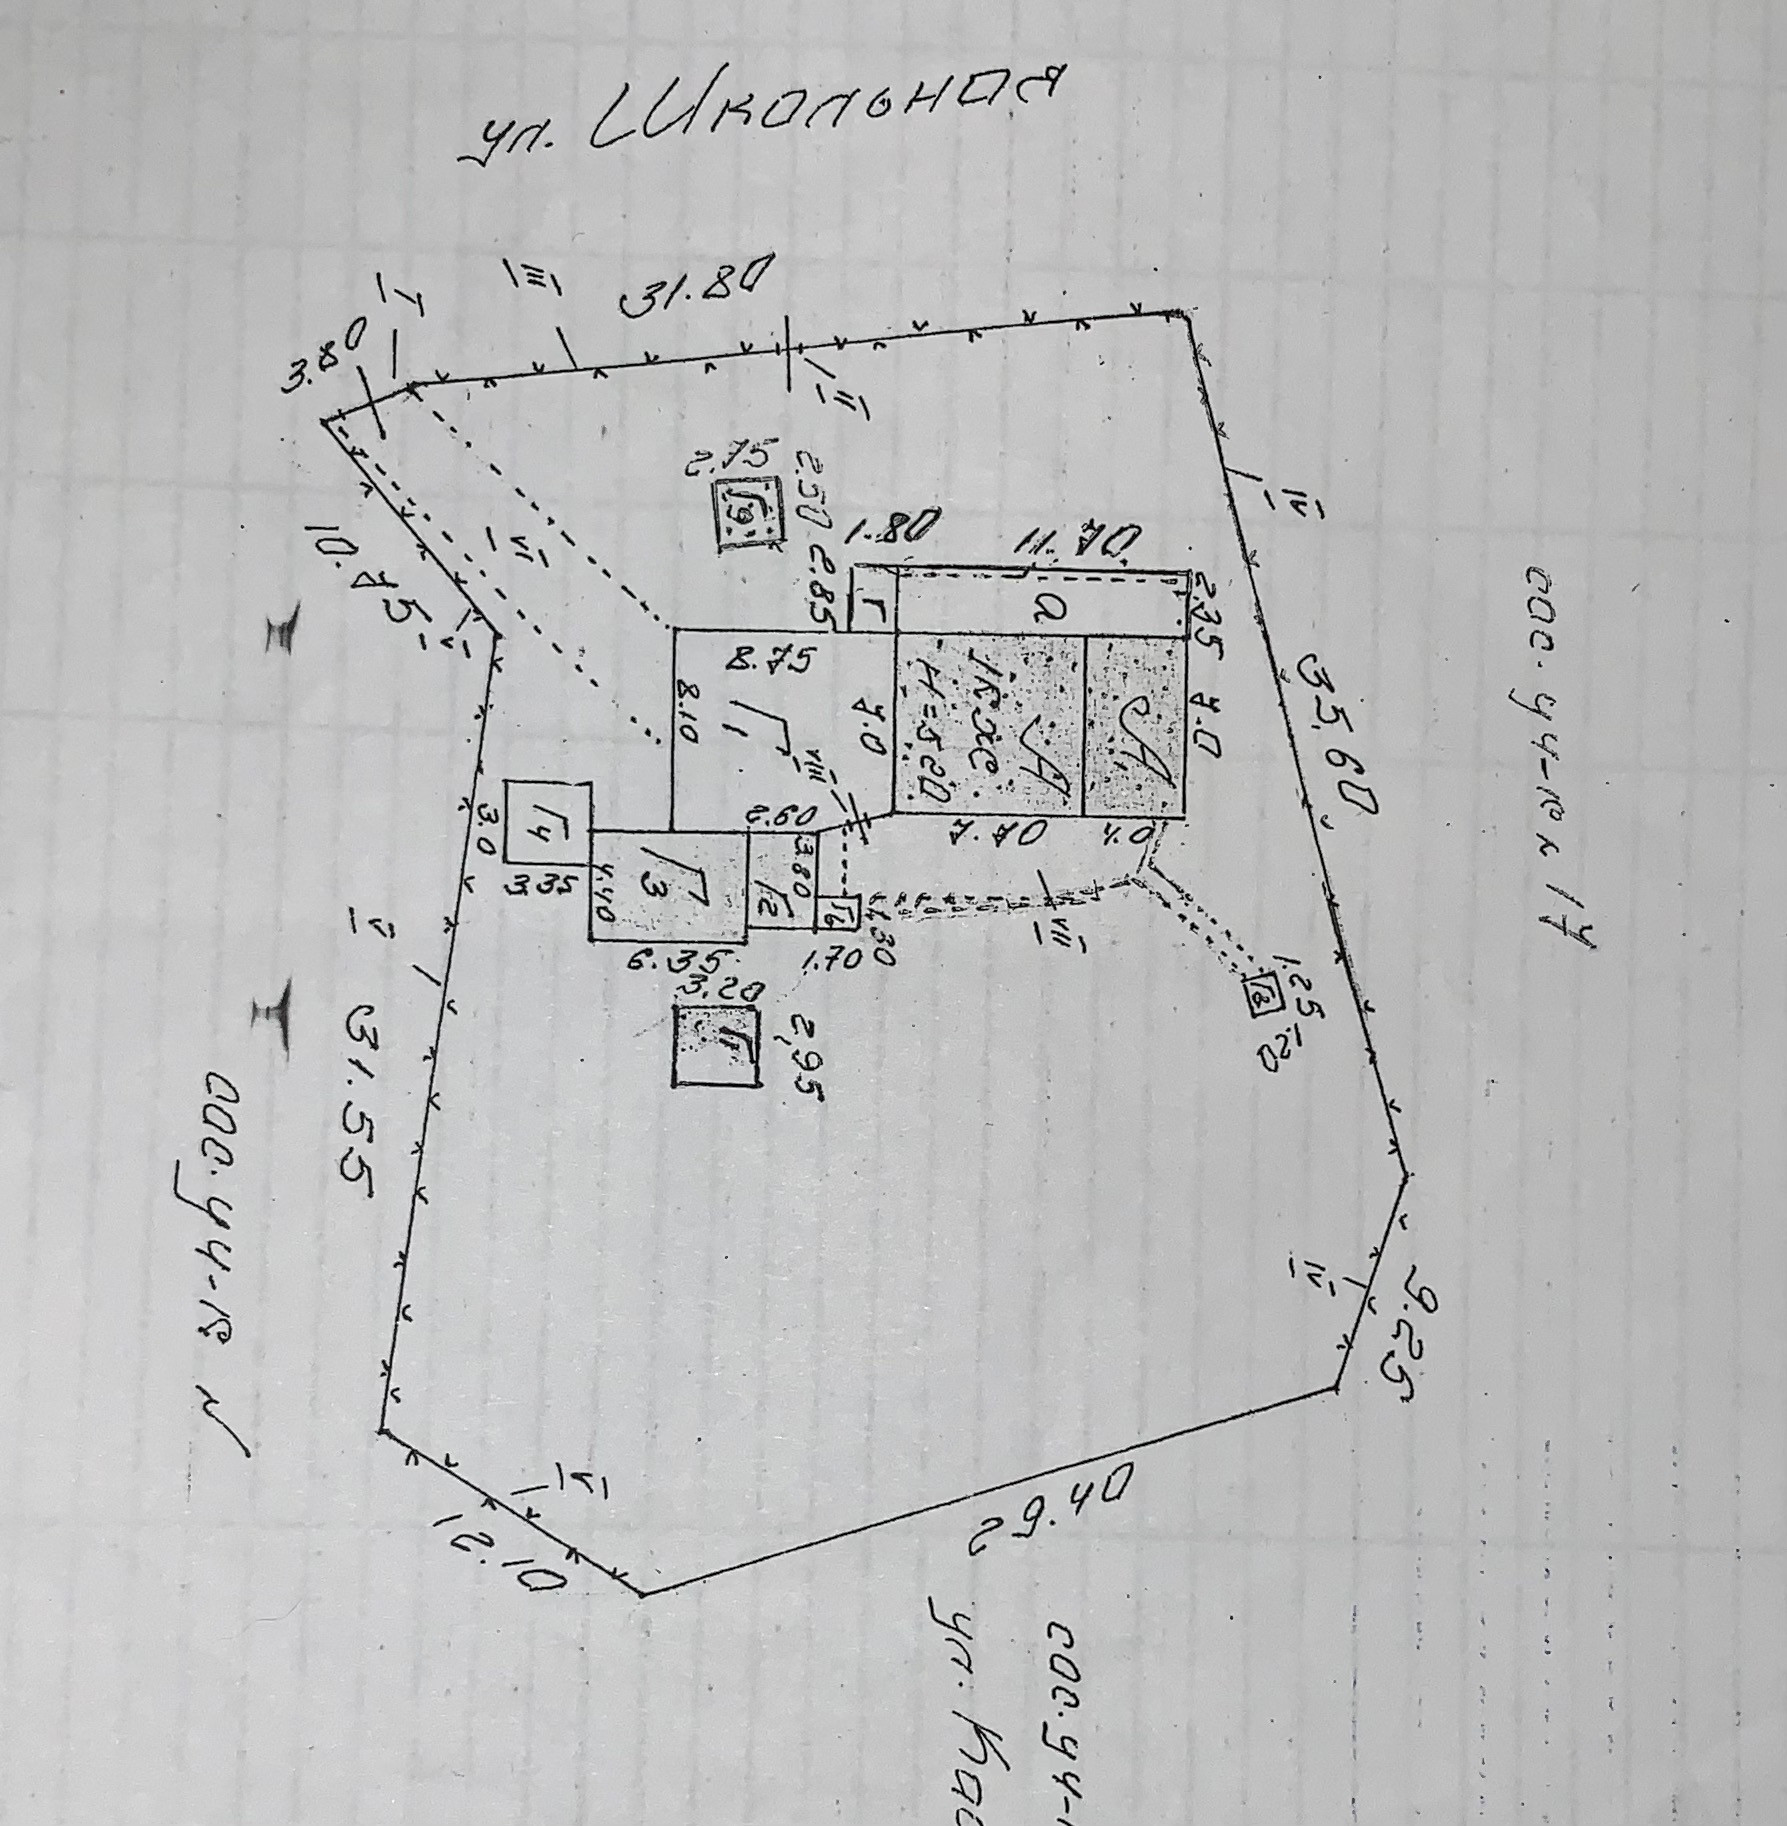 ул. Школьная
31.80
III
I
3.80
II
2.75
2.50
Г9
IV
сос. уч-к № 17
1.80
11.70
2.85
Г
а
2.35
35.60
VI
10.75
V
8.75
8.10
Г1
7.0
1КЖ
Н=5.20
А
А1
7.0
VIII
2.60
7.70
4.0
3.0
Г4
3.35
4.40
Г3
Г2
3.80
Г6
1.30
6.35
1.70
VII
V
3.20
2,95
Г
1.25
1.20
Г8
31.55
сос. уч-к №
IV
9.25
IV
12.10
29.40
сос. уч-
ул.